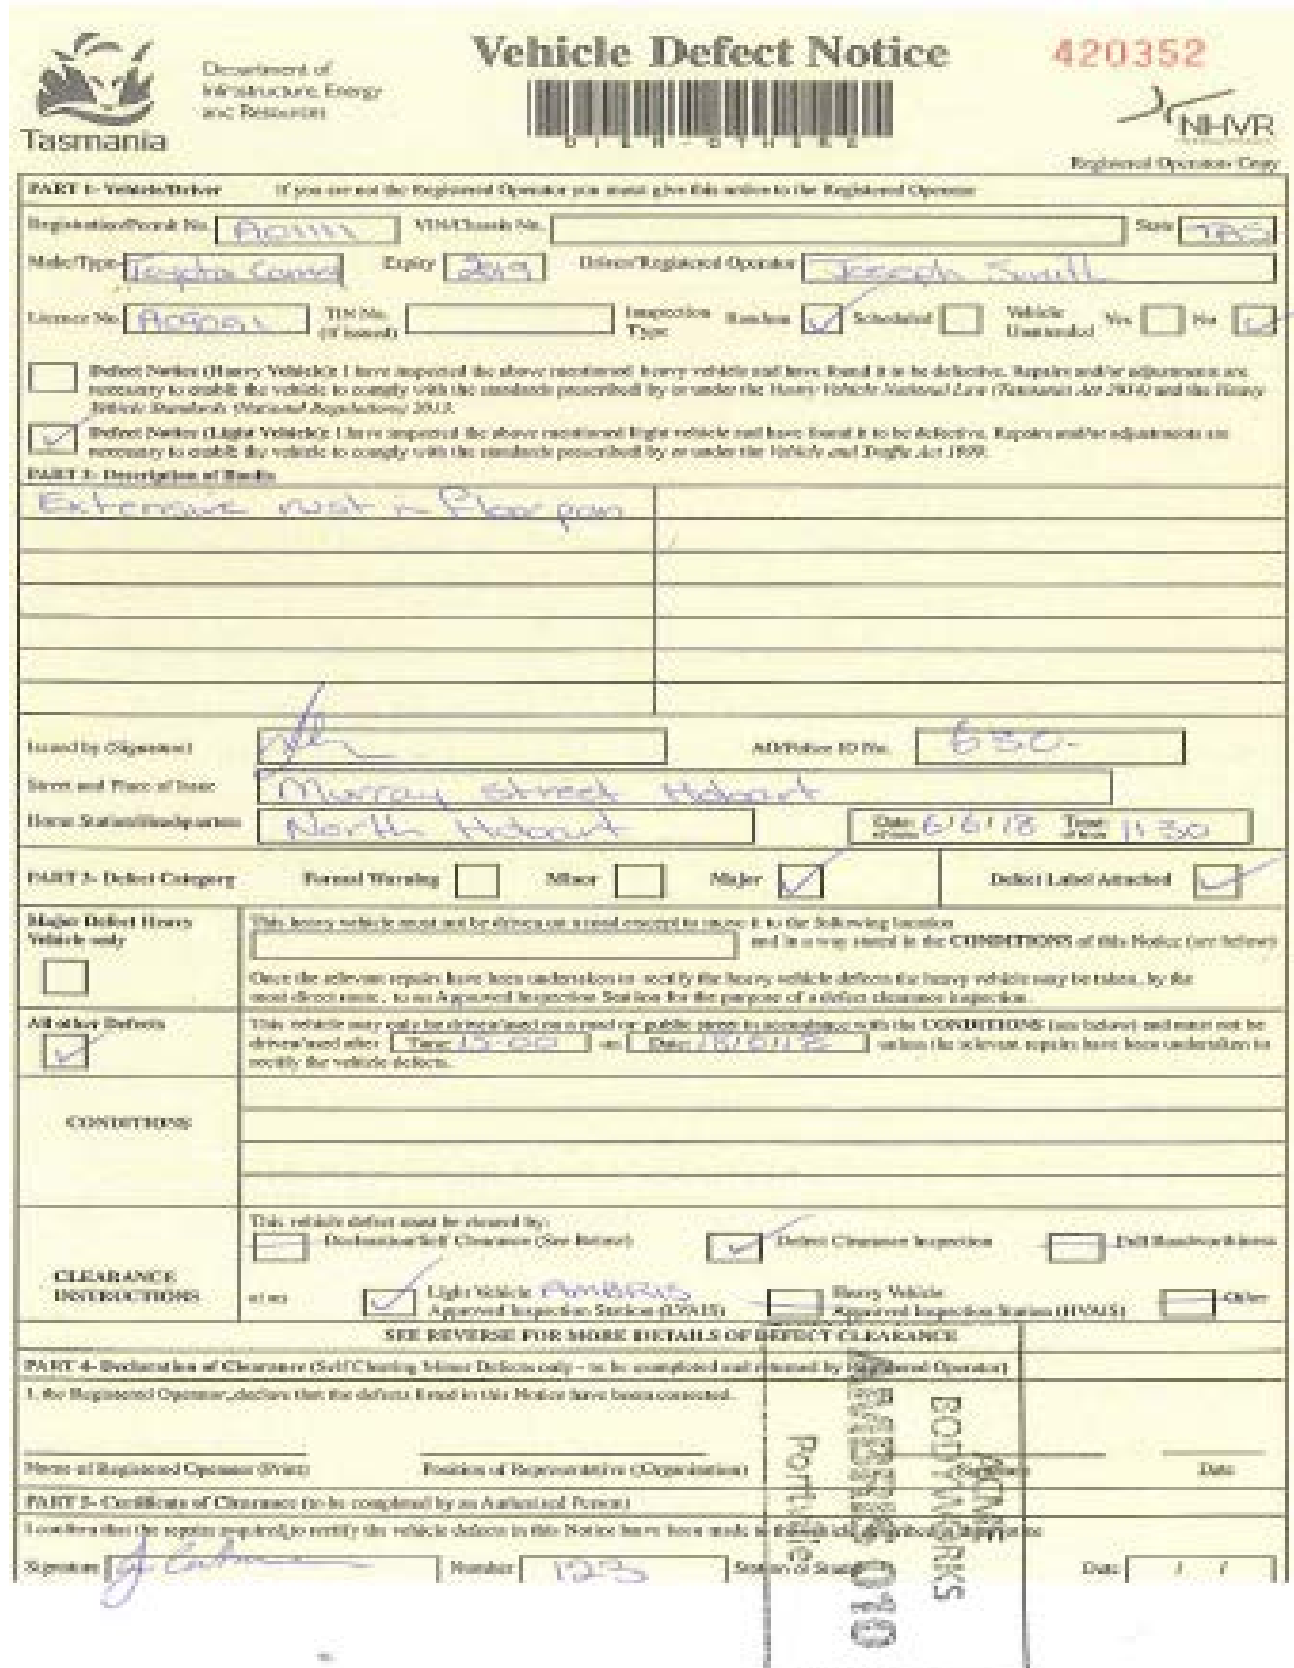 Vehicle Defect Notice
420352
Tasmania
Department of
Infrastructure, Energy
and Resources
NHVR
Registered Operators Copy
PART 1- Vehicle/Driver If you are not the Registered Operator you must give this notice to the Registered Operator
Registration/Permit No. VIN/Chassis No. State TAS
Make/Type Toyota Expiry 2019 Driver/Registered Operator Joseph Smith
Licence No. TIN No. (If issued) Inspection Type Random Scheduled Vehicle Unattended Yes No
Defect Notice (Heavy Vehicle): I have inspected the above mentioned heavy vehicle and have found it to be defective. Repairs and/or adjustments are
necessary to enable the vehicle to comply with the standards prescribed by or under the Heavy Vehicle National Law (Tasmania) Act 2014 and the Heavy
Vehicle Standards (National Regulations) 2013.
Defect Notice (Light Vehicle): I have inspected the above mentioned light vehicle and have found it to be defective. Repairs and/or adjustments are
necessary to enable the vehicle to comply with the standards prescribed by or under the Vehicle and Traffic Act 1999.
PART 2- Description of
Extensive rust in floor pan
Issued by (Signature) AO/Police ID No. 630
Street and Place of Issue Murray Street Hobart
Home Station/Headquarters North Hobart Date: 6/6/18 Time: 11 30
PART 3- Defect Category Formal Warning Minor Major Defect Label Attached
Major Defect Heavy
Vehicle only
This heavy vehicle must not be driven on a road except to move it to the following location
and in a way stated in the CONDITIONS of this Notice (see below)
Once the relevant repairs have been undertaken to rectify the heavy vehicle defects the heavy vehicle may be taken, by the
most direct route, to an Approved Inspection Station for the purpose of a defect clearance inspection.
All other Defects
This vehicle may only be driven/used on a road or public street in accordance with the CONDITIONS (see below) and must not be
driven/used after Time: 15 00 on Date: unless the relevant repairs have been undertaken to
rectify the vehicle defects.
CONDITIONS
CLEARANCE
INSTRUCTIONS
This vehicle defect must be cleared by:
Declaration/Self Clearance (See Below) Defect Clearance Inspection Full Roadworthiness
at an Light Vehicle
Approved Inspection Station (LVAIS)
Heavy Vehicle
Approved Inspection Station (HVAIS)
Other
SEE REVERSE FOR MORE DETAILS OF DEFECT CLEARANCE
PART 4- Declaration of Clearance (Self Clearing Minor Defects only - to be completed and returned by Registered Operator)
I, the Registered Operator, declare that the defects listed in this Notice have been corrected.
Name of Registered Operator (Print) Position of Representative (Organisation) Signature Date
PART 5- Certificate of Clearance (to be completed by an Authorised Person)
I confirm that the repairs required to rectify the vehicle defects in this Notice have been made to the vehicle described in this notice
Signature Number 123 Station or Stamp Date / /
ACME
BODYWORKS
010